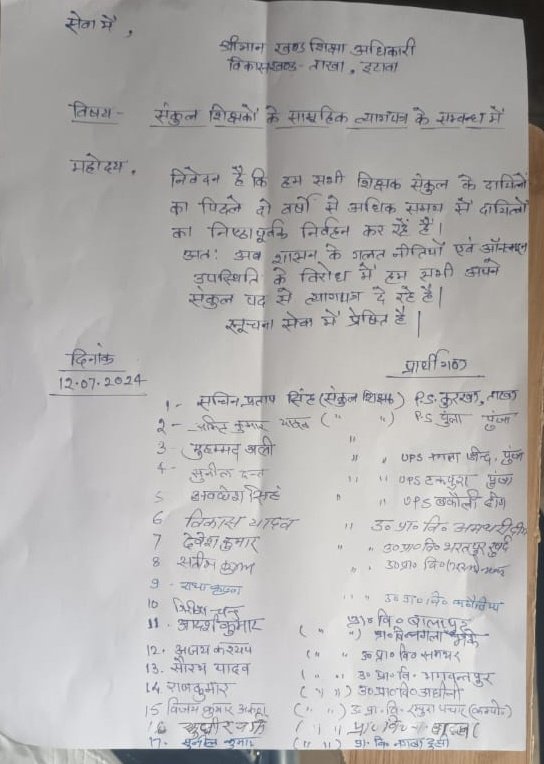 सेवा में,
श्रीमान खण्ड शिक्षा अधिकारी
विकासखण्ड- ताखा, इटावा
विषय- संकुल शिक्षकों के सामूहिक त्यागपत्र के सम्बन्ध में
महोदय,
निवेदन है कि हम सभी शिक्षक संकुल के दायित्वों
का पिछले दो वर्षों से अधिक समय से दायित्वों
का निष्ठापूर्वक निर्वहन कर रहे हैं।
अतः अब शासन के गलत नीतियों एवं ऑनलाइन
उपस्थिति के विरोध में हम सभी अपने
संकुल पद से त्यागपत्र दे रहे हैं।
सूचना सेवा में प्रेषित है।
दिनांक
12.07.2024
प्रार्थीगण
1- सचिन प्रताप सिंह (संकुल शिक्षक) P.S. कुरखा, ताखा
2- कुमार यादव ( " " ) P.S पुंजा पुंजा
3- मुहम्मद अली " " UPS पुंजा
4- सुनील दत्त " " UPS पुंजा
5 अवधेश सिंह " " UPS बकौली
6 विकास यादव " उ० प्रा० वि०
7 देवेश कुमार " " उ०प्रा०वि० भरतपुर खुर्द
8 " " उ०प्रा० वि०
9 - राधा कृष्ण " " उ० प्रा० वि०
10 गिरीश चन्द्र प्रा० वि० बालापुर
11. आदर्श कुमार ( " " ) प्रा० वि० नगला
12. अजय कश्यप ( " " उ० प्रा० वि० समथर
13. सौरभ यादव ( " " उ० प्रा० वि०
14. राजकुमार ( " " ) उ०प्रा०वि०
15 विजय कुमार ( " " ) उ. प्रा. वि.
16 ( " " प्रा० वि०
17. सुनील कुमार ( " " ) प्रा. वि. नगला